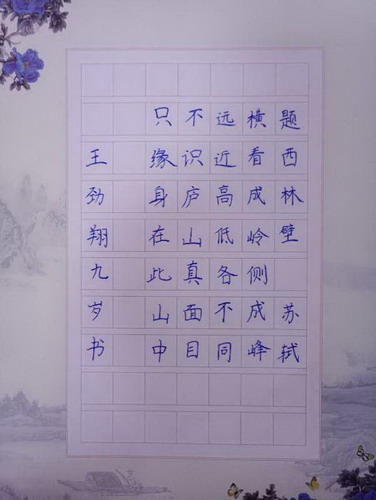 题西林壁 苏轼
横看成岭侧成峰
远近高低各不同
不识庐山真面目
只缘身在此山中
王劲翔九岁书